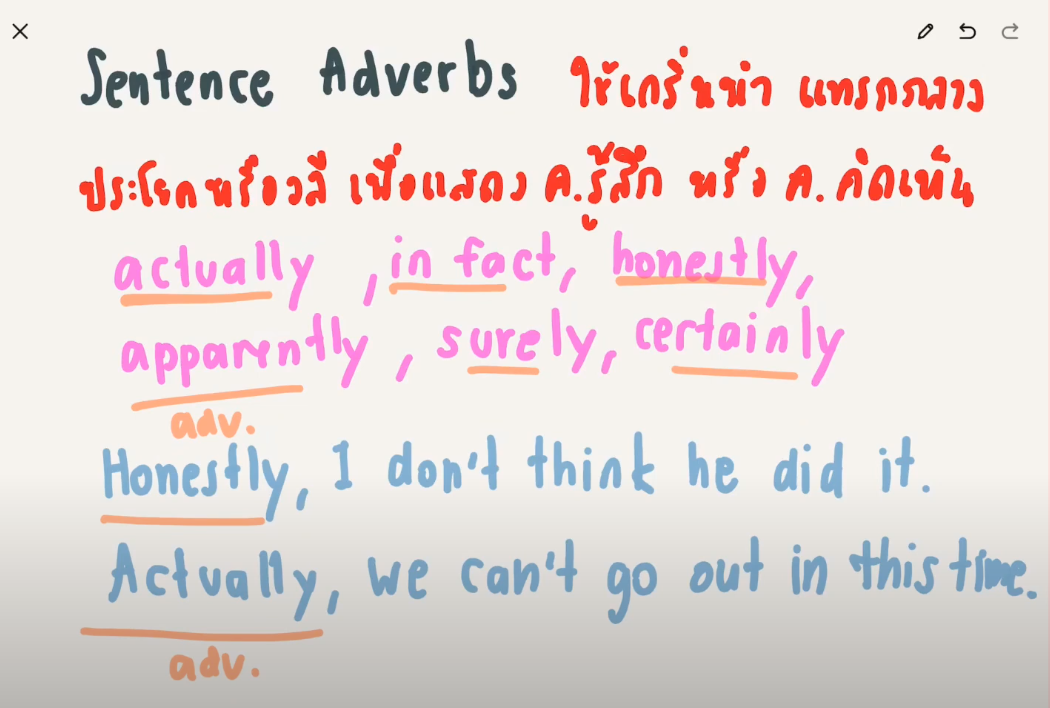 Sentence Adverbs ใช้เกริ่นนำ แทรกกลาง
ประโยคหรือวลี เพื่อแสดง ค.รู้สึก หรือ ค. คิดเห็น
actually , in fact, honestly,
apparently , surely, certainly
adv.
Honestly, I don't think he did it.
Actually, we can't go out in this time.
adv.